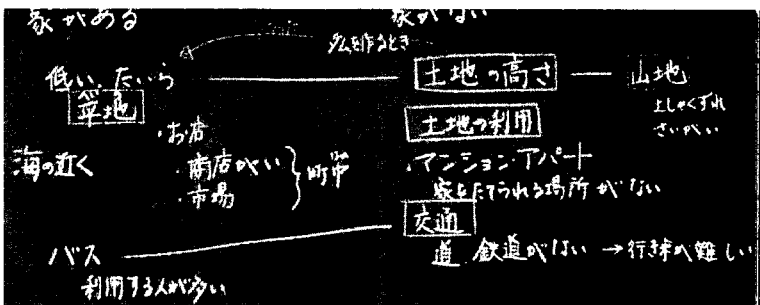 家がある
家がない
ダムを作るとき
低い、たいら
土地の高さ
山地
平地
土しゃくずれ
さいがい
土地の利用
・お店
海の近く
・商店がい
・市場
町市
・マンション・アパート
家をたてられる場所がない
交通
バス
道 鉄道がない → 行き来が難しい
利用する人が多い